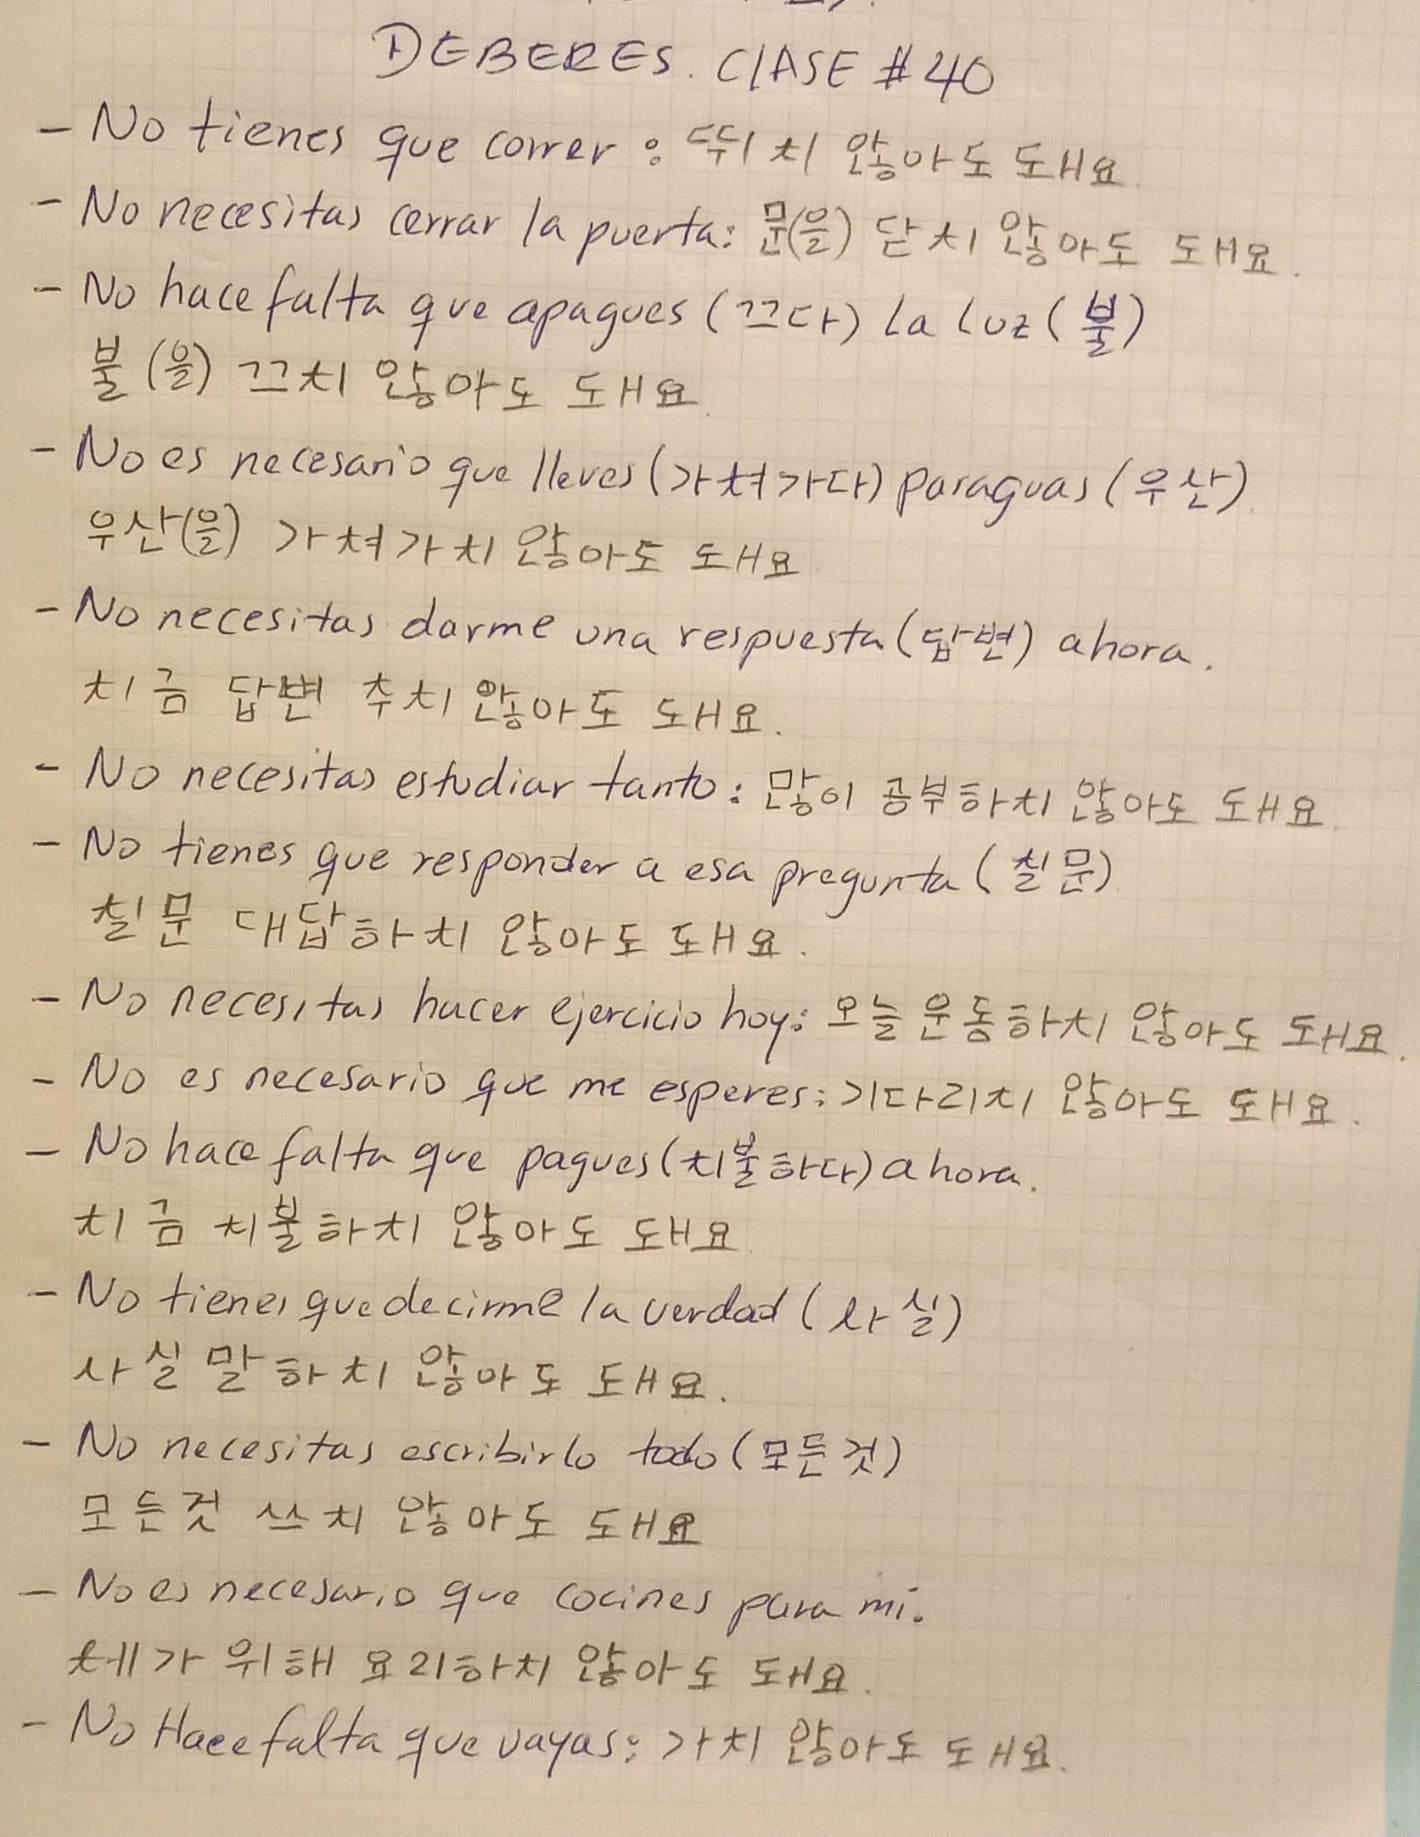 DEBERES. CLASE #40
- No tienes que correr : 뛰지 않아도 돼요.
- No necesitas cerrar la puerta: 문(을) 닫지 않아도 돼요.
- No hace falta que apagues (끄다) la luz (불)
불(을) 끄지 않아도 돼요.
- No es necesario que lleves (가져가다) paraguas (우산).
우산(을) 가져가지 않아도 돼요.
- No necesitas darme una respuesta (답변) ahora.
지금 답변 주지 않아도 돼요.
- No necesitas estudiar tanto: 많이 공부하지 않아도 돼요.
- No tienes que responder a esa pregunta (질문).
질문 대답하지 않아도 돼요.
- No necesitas hacer ejercicio hoy: 오늘 운동하지 않아도 돼요.
- No es necesario que me esperes: 기다리지 않아도 돼요.
- No hace falta que pagues (지불하다) ahora.
지금 지불하지 않아도 돼요.
- No tienes que decirme la verdad (사실)
사실 말하지 않아도 돼요.
- No necesitas escribirlo todo (모든것)
모든것 쓰지 않아도 돼요
- No es necesario que cocines para mi.
제가 위해 요리하지 않아도 돼요.
- No Hace falta que vayas: 가지 않아도 돼요.